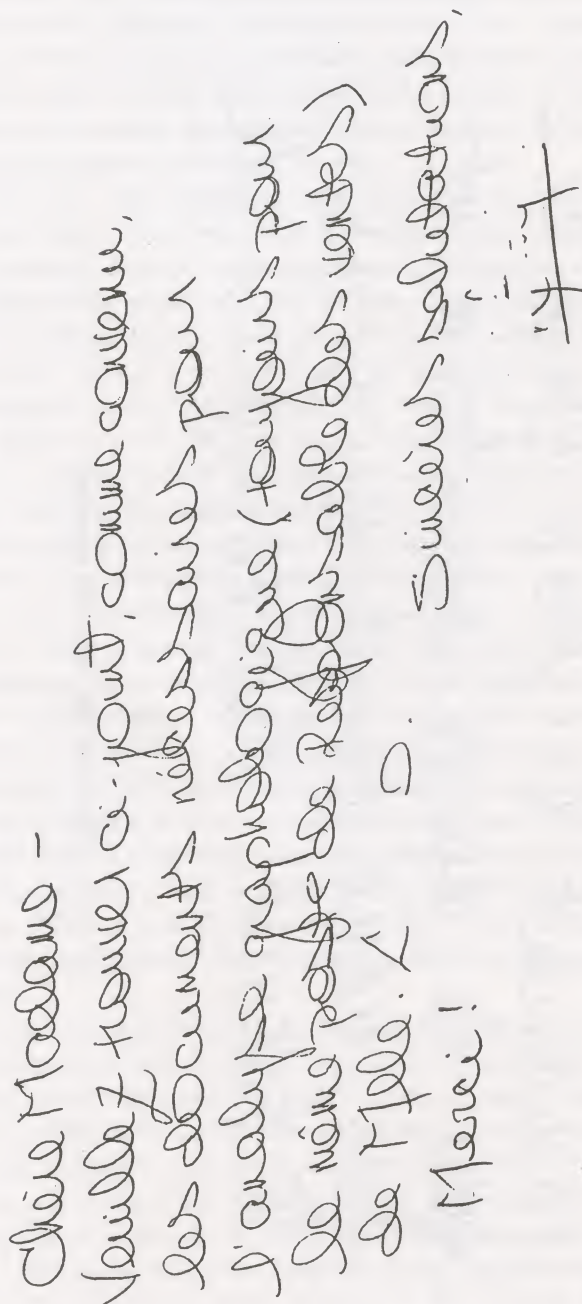 Chère Madame -
Veuillez trouver ci-joint, comme convenu,
les documents nécessaires pour
l'analyse graphologique (toujours pour
le même poste de Responsable des ventes)
de Melle. L D.
Merci! Sincères salutations.